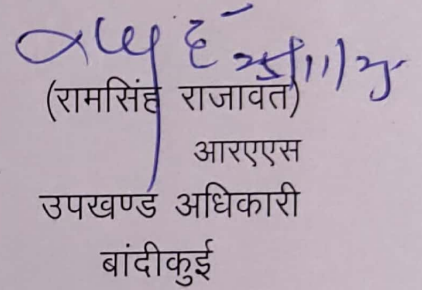 (रामसिंह राजावत)
आरएएस
उपखण्ड अधिकारी
बांदीकुई